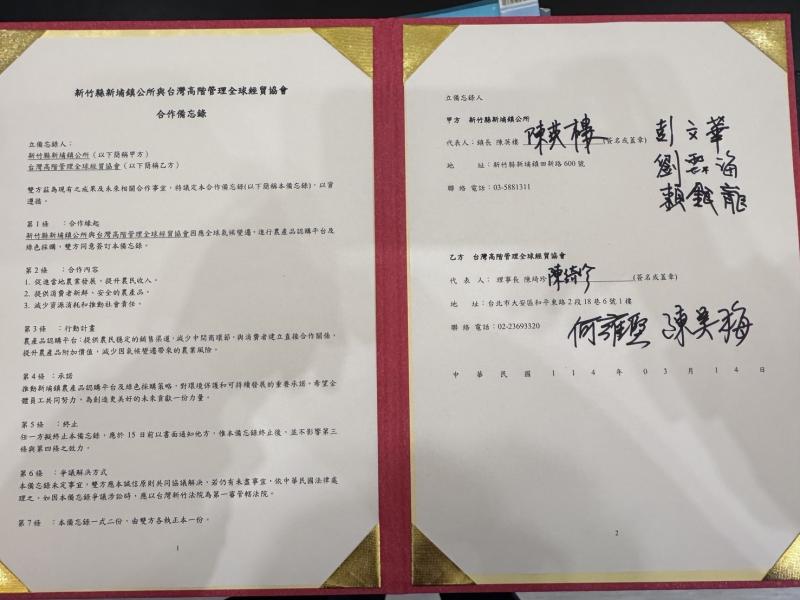 新竹縣新埔鎮公所與台灣高階管理全球經貿協會
合作備忘錄
立備忘錄人：
新竹縣新埔鎮公所（以下簡稱甲方）
台灣高階管理全球經貿協會（以下簡稱乙方）
雙方茲為現有之成果及未來相關合作事宜，特議定本合作備忘錄(以下簡稱本備忘錄)，以資
遵循。
第 1 條 ：合作緣起
新竹縣新埔鎮公所與台灣高階管理全球經貿協會因應全球氣候變遷，進行農產品認購平台及
綠色採購，雙方同意簽訂本備忘錄。
第 2 條 ：合作內容
1. 促進當地農業發展，提升農民收入。
2. 提供消費者新鮮、安全的農產品。
3. 減少資源消耗和推動社會責任。
第 3 條 ：行動計畫
農產品認購平台：提供農民穩定的銷售渠道，減少中間商環節，與消費者建立直接合作關係，
提升農產品附加價值，減少因氣候變遷帶來的農業風險。
第 4 條 ：承諾
推動新埔鎮農產品認購平台及綠色採購策略，對環境保護和可持續發展的重要承諾。希望全
體員工共同努力，為創造更美好的未來貢獻一份力量。
第 5 條 ：終止
任一方擬終止本備忘錄，應於 15 日前以書面通知他方，惟本備忘錄終止後，並不影響第三
條與第四條之效力。
第 6 條 ：爭議解決方式
本備忘錄未定事宜，雙方應本誠信原則共同協議解決，若仍有未盡事宜，依中華民國法律處
理之。如因本備忘錄爭議涉訟時，應以台灣新竹法院為第一審管轄法院。
第 7 條 ：本備忘錄一式二份，由雙方各執正本一份。
1
立備忘錄人
甲方 新竹縣新埔鎮公所
代表人：鎮長 陳英樓 陳英樓 (簽名或蓋章)
彭文華
地 址：新竹縣新埔鎮田新路 600 號
劉雲海
聯絡電話：03-5881311
賴銀龍
乙方 台灣高階管理全球經貿協會
代 表 人：理事長 陳綺珍 陳綺珍 (簽名或蓋章)
地 址：台北市大安區和平東路 2 段 18 巷 6 號 1 樓
聯絡電話：02-23693320
何雍堅 陳美梅
中華民國 114 年 03 月 14 日
2